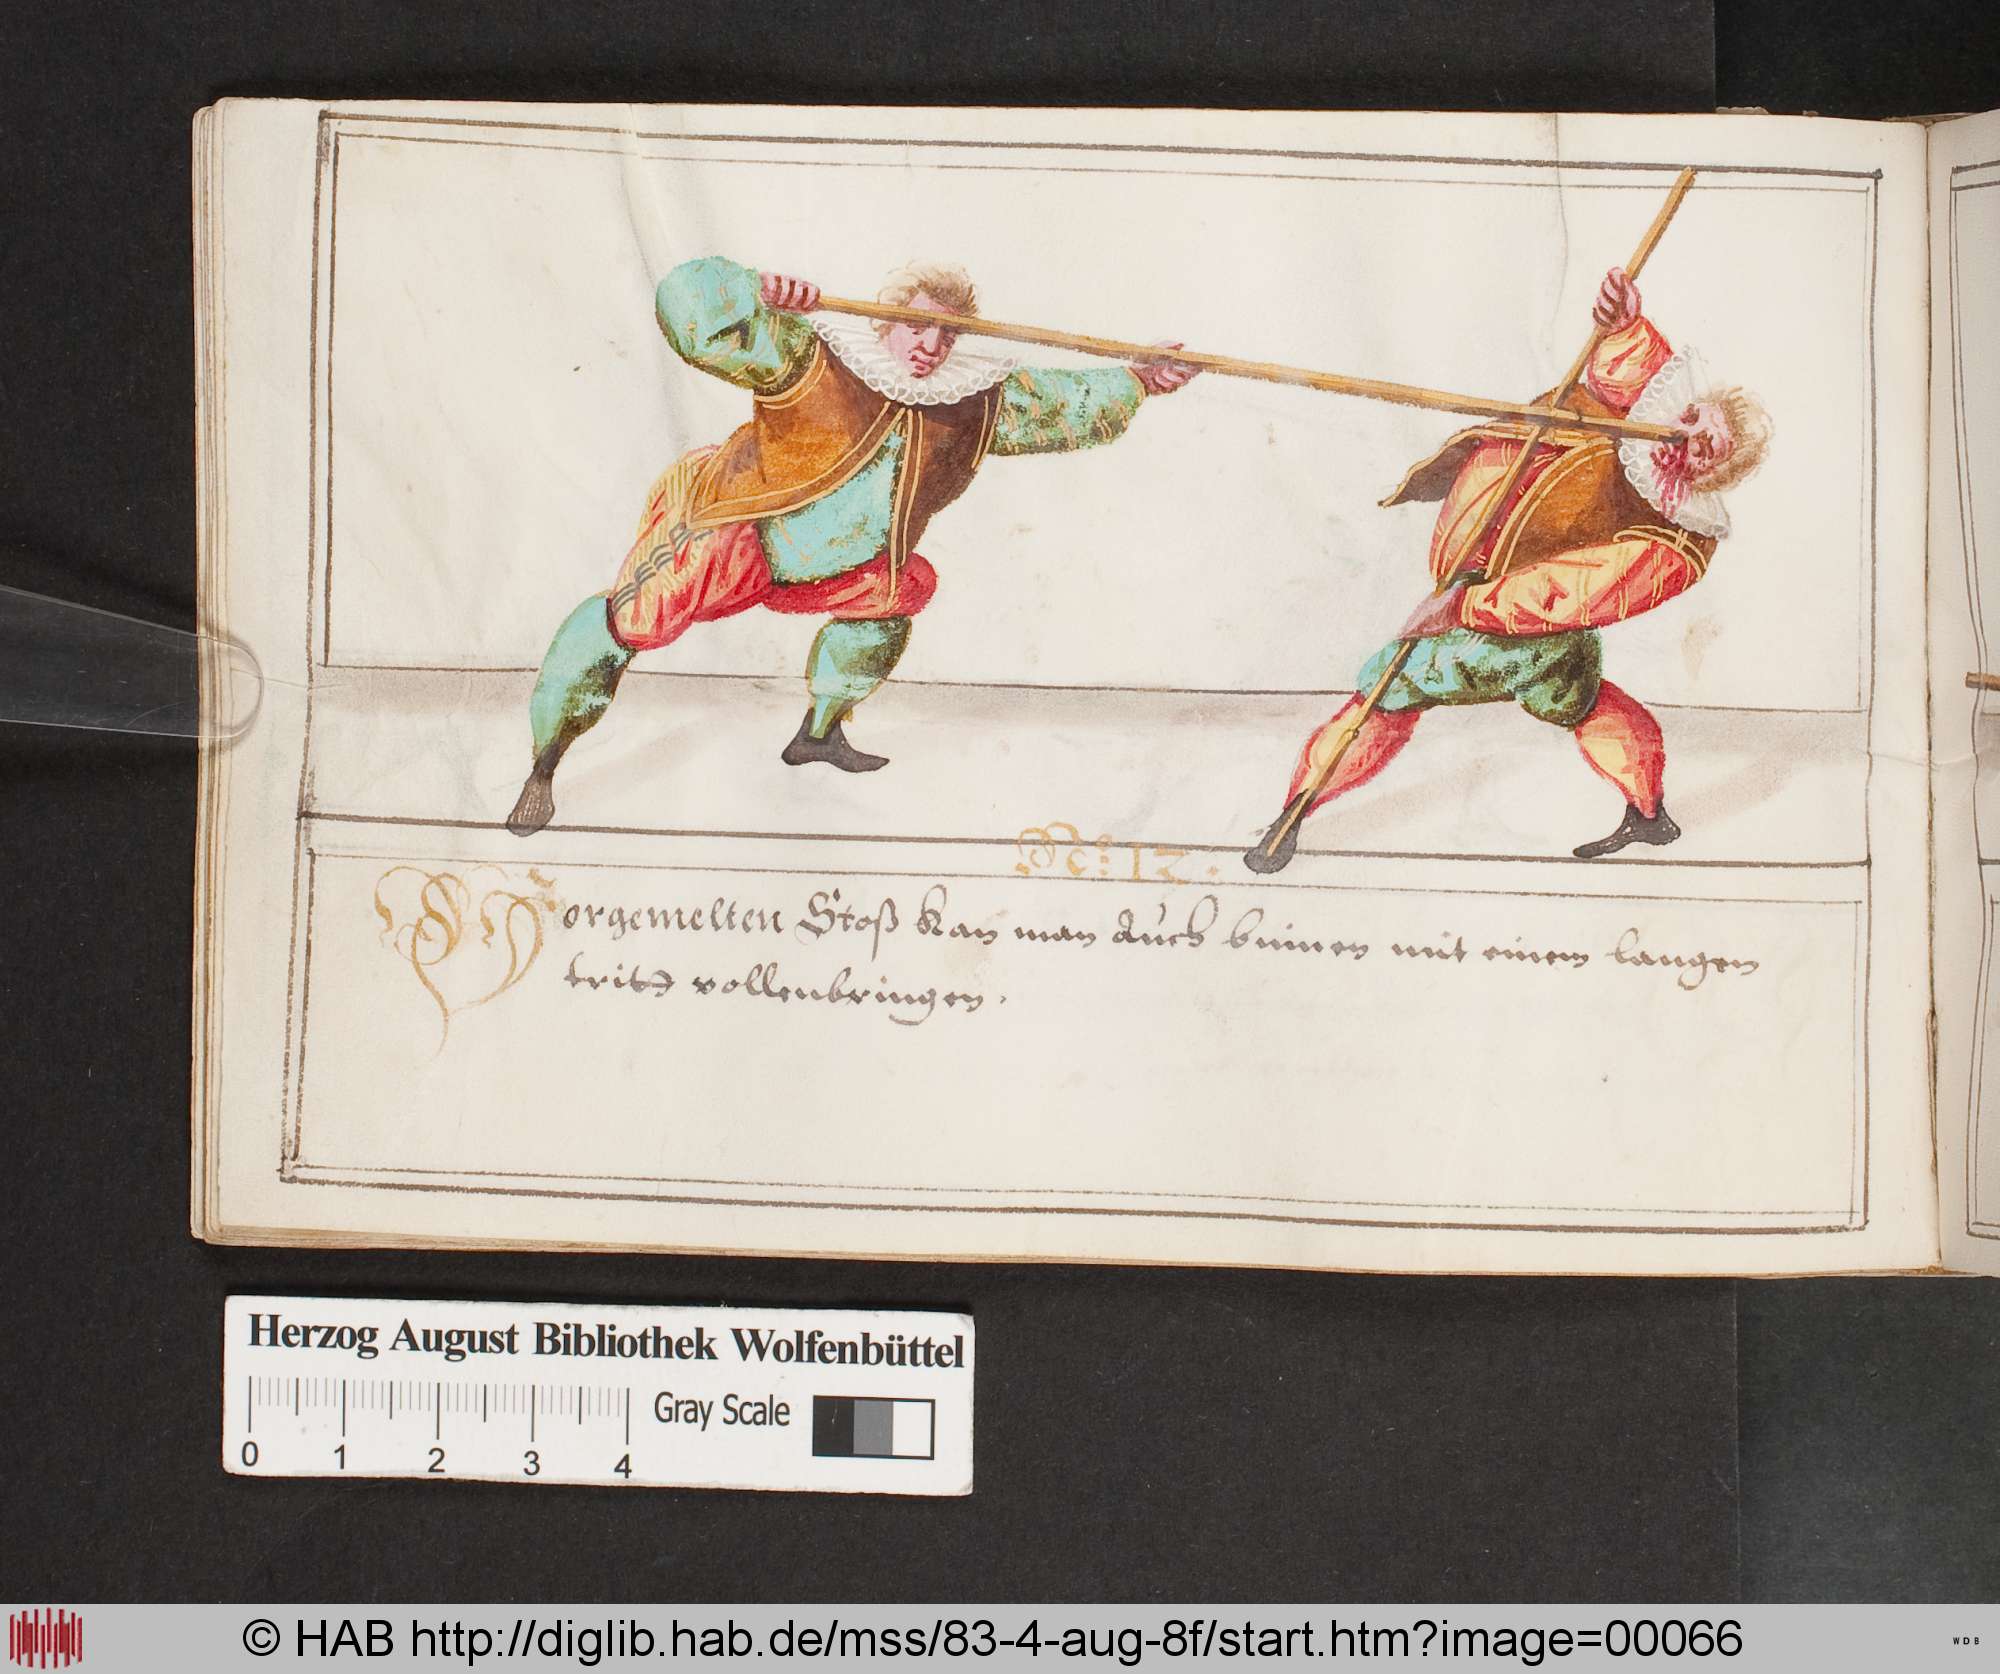 No: 12.
Vorgemelten Stoß kan man Auch binnen mit einem langen
tritt vollenbringen.
Herzog August Bibliothek Wolfenbüttel
0 1 2 3 4
Gray Scale
© HAB http://diglib.hab.de/mss/83-4-aug-8f/start.htm?image=00066
WDB